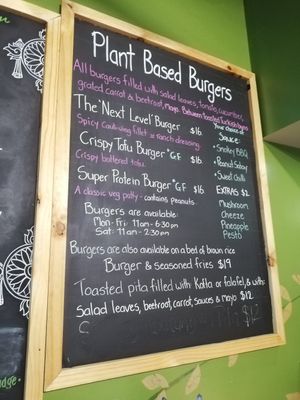 Plant Based Burgers
All burgers filled with salad leaves, tomato, cucumber,
grated carrot & beetroot, mayo. Between toasted Turkish buns
The 'Next Level' Burger $16
Spicy Cauli-wing fillet w ranch dressing.
Crispy Tofu Burger *GF $16
Crispy battered tofu.
Super Protein Burger *GF $16
A classic veg patty - contains peanuts.
Your choice of
Sauce
• Smokey BBQ
• Peanut Satay
• Sweet Chilli
EXTRAS $2
Mushroom
Cheese
Pineapple
Pesto
Burgers are available:
Mon-Fri: 11am - 6:30pm
Sat: 11am - 2:30pm
Burgers are also available on a bed of brown rice
Burger & seasoned fries $19
Toasted pita filled with Kofta or falafel, & with
salad leaves, beetroot, carrot, sauces & mayo $12